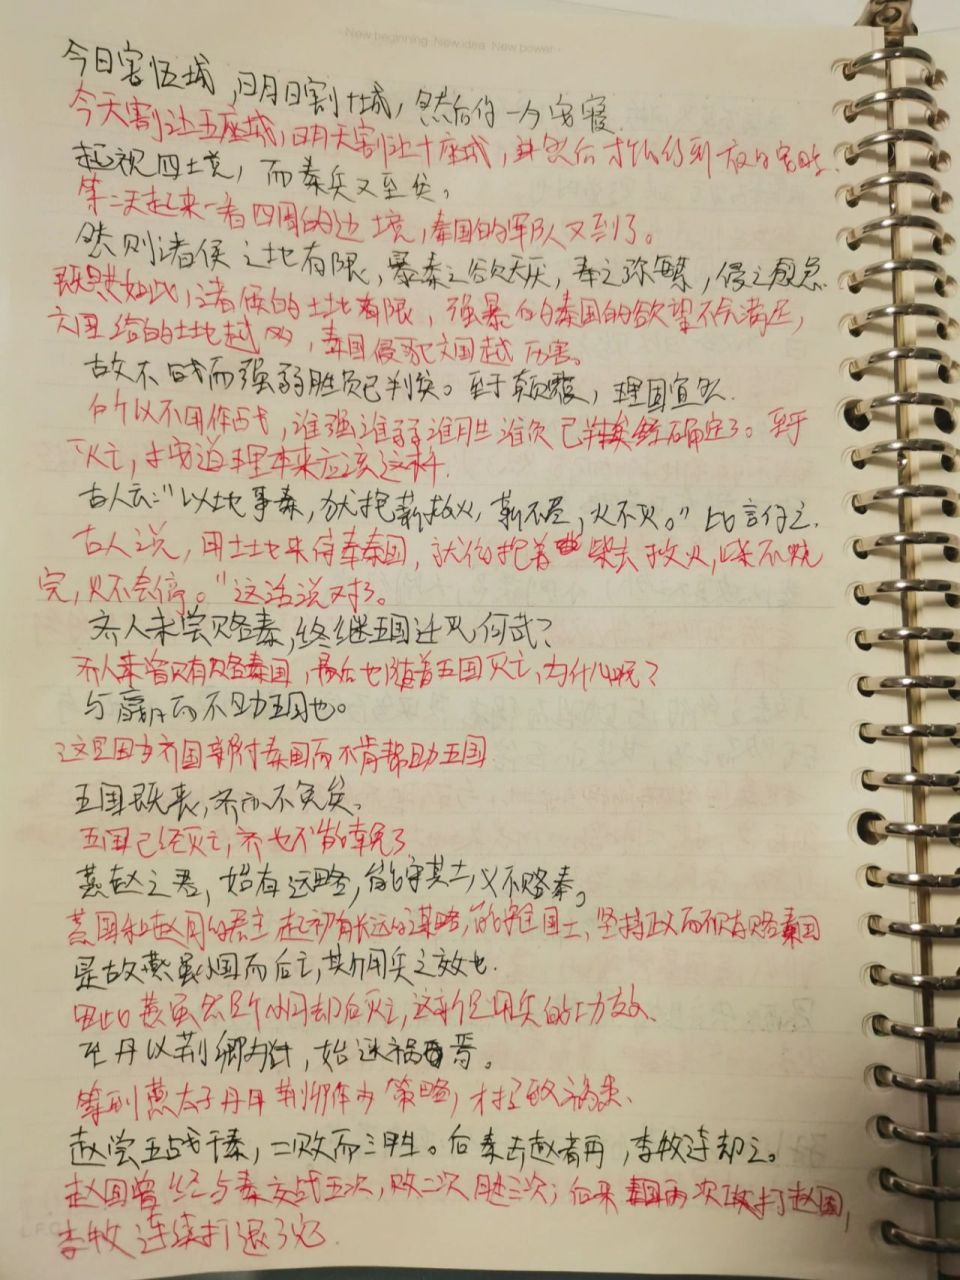 New beginning New idea New power
今日割五城，明日割十城，然后得一夕安寝
今天割让五座城，明天割让十座城，然后才能得到一夜的安睡.
起视四境，而秦兵又至矣。
第二天起来一看四周的边境，秦国的军队又到了。
然则诸侯之地有限，暴秦之欲无厌，奉之弥繁，侵之愈急.
既然如此，诸侯的土地有限，强暴的秦国的欲望不会满足，
六国给的土地越多，秦国侵犯六国越厉害。
故不战而强弱胜负已判矣。至于颠覆，理固宜然.
所以不用作战，谁强谁弱谁胜谁败已经确定了。至于
灭亡，按道理本来应该这样.
古人云："以地事秦，犹抱薪救火，薪不尽，火不灭。"此言得之.
古人说，用土地来侍奉秦国，就像抱着柴去救火，柴不烧
完，火不会停。"这话说对了。
齐人未尝赂秦，终继五国迁灭何哉？
齐人未曾贿赂秦国，最后也随着五国灭亡，为什么呢？
与嬴而不助五国也。
这是因为齐国亲附秦国而不肯帮助五国
五国既丧，齐亦不免矣。
五国已经灭亡，齐也不能幸免了
燕赵之君，始有远略，能守其土，义不赂秦。
燕国和赵国的君主起初有长远的谋略，能守住国土，坚持正义而不贿赂秦国
是故燕虽小国而后亡，斯用兵之效也.
因此燕虽然是个小国却后灭亡，这就是用兵的功效.
至丹以荆卿为计，始速祸焉。
等到燕太子丹用荆卿作为策略，才招致祸患.
赵尝五战于秦，二败而三胜。后秦击赵者再，李牧连却之。
赵国曾经与秦交战五次，败二次胜三次；后来秦国两次攻打赵国，
李牧连续打退了它.